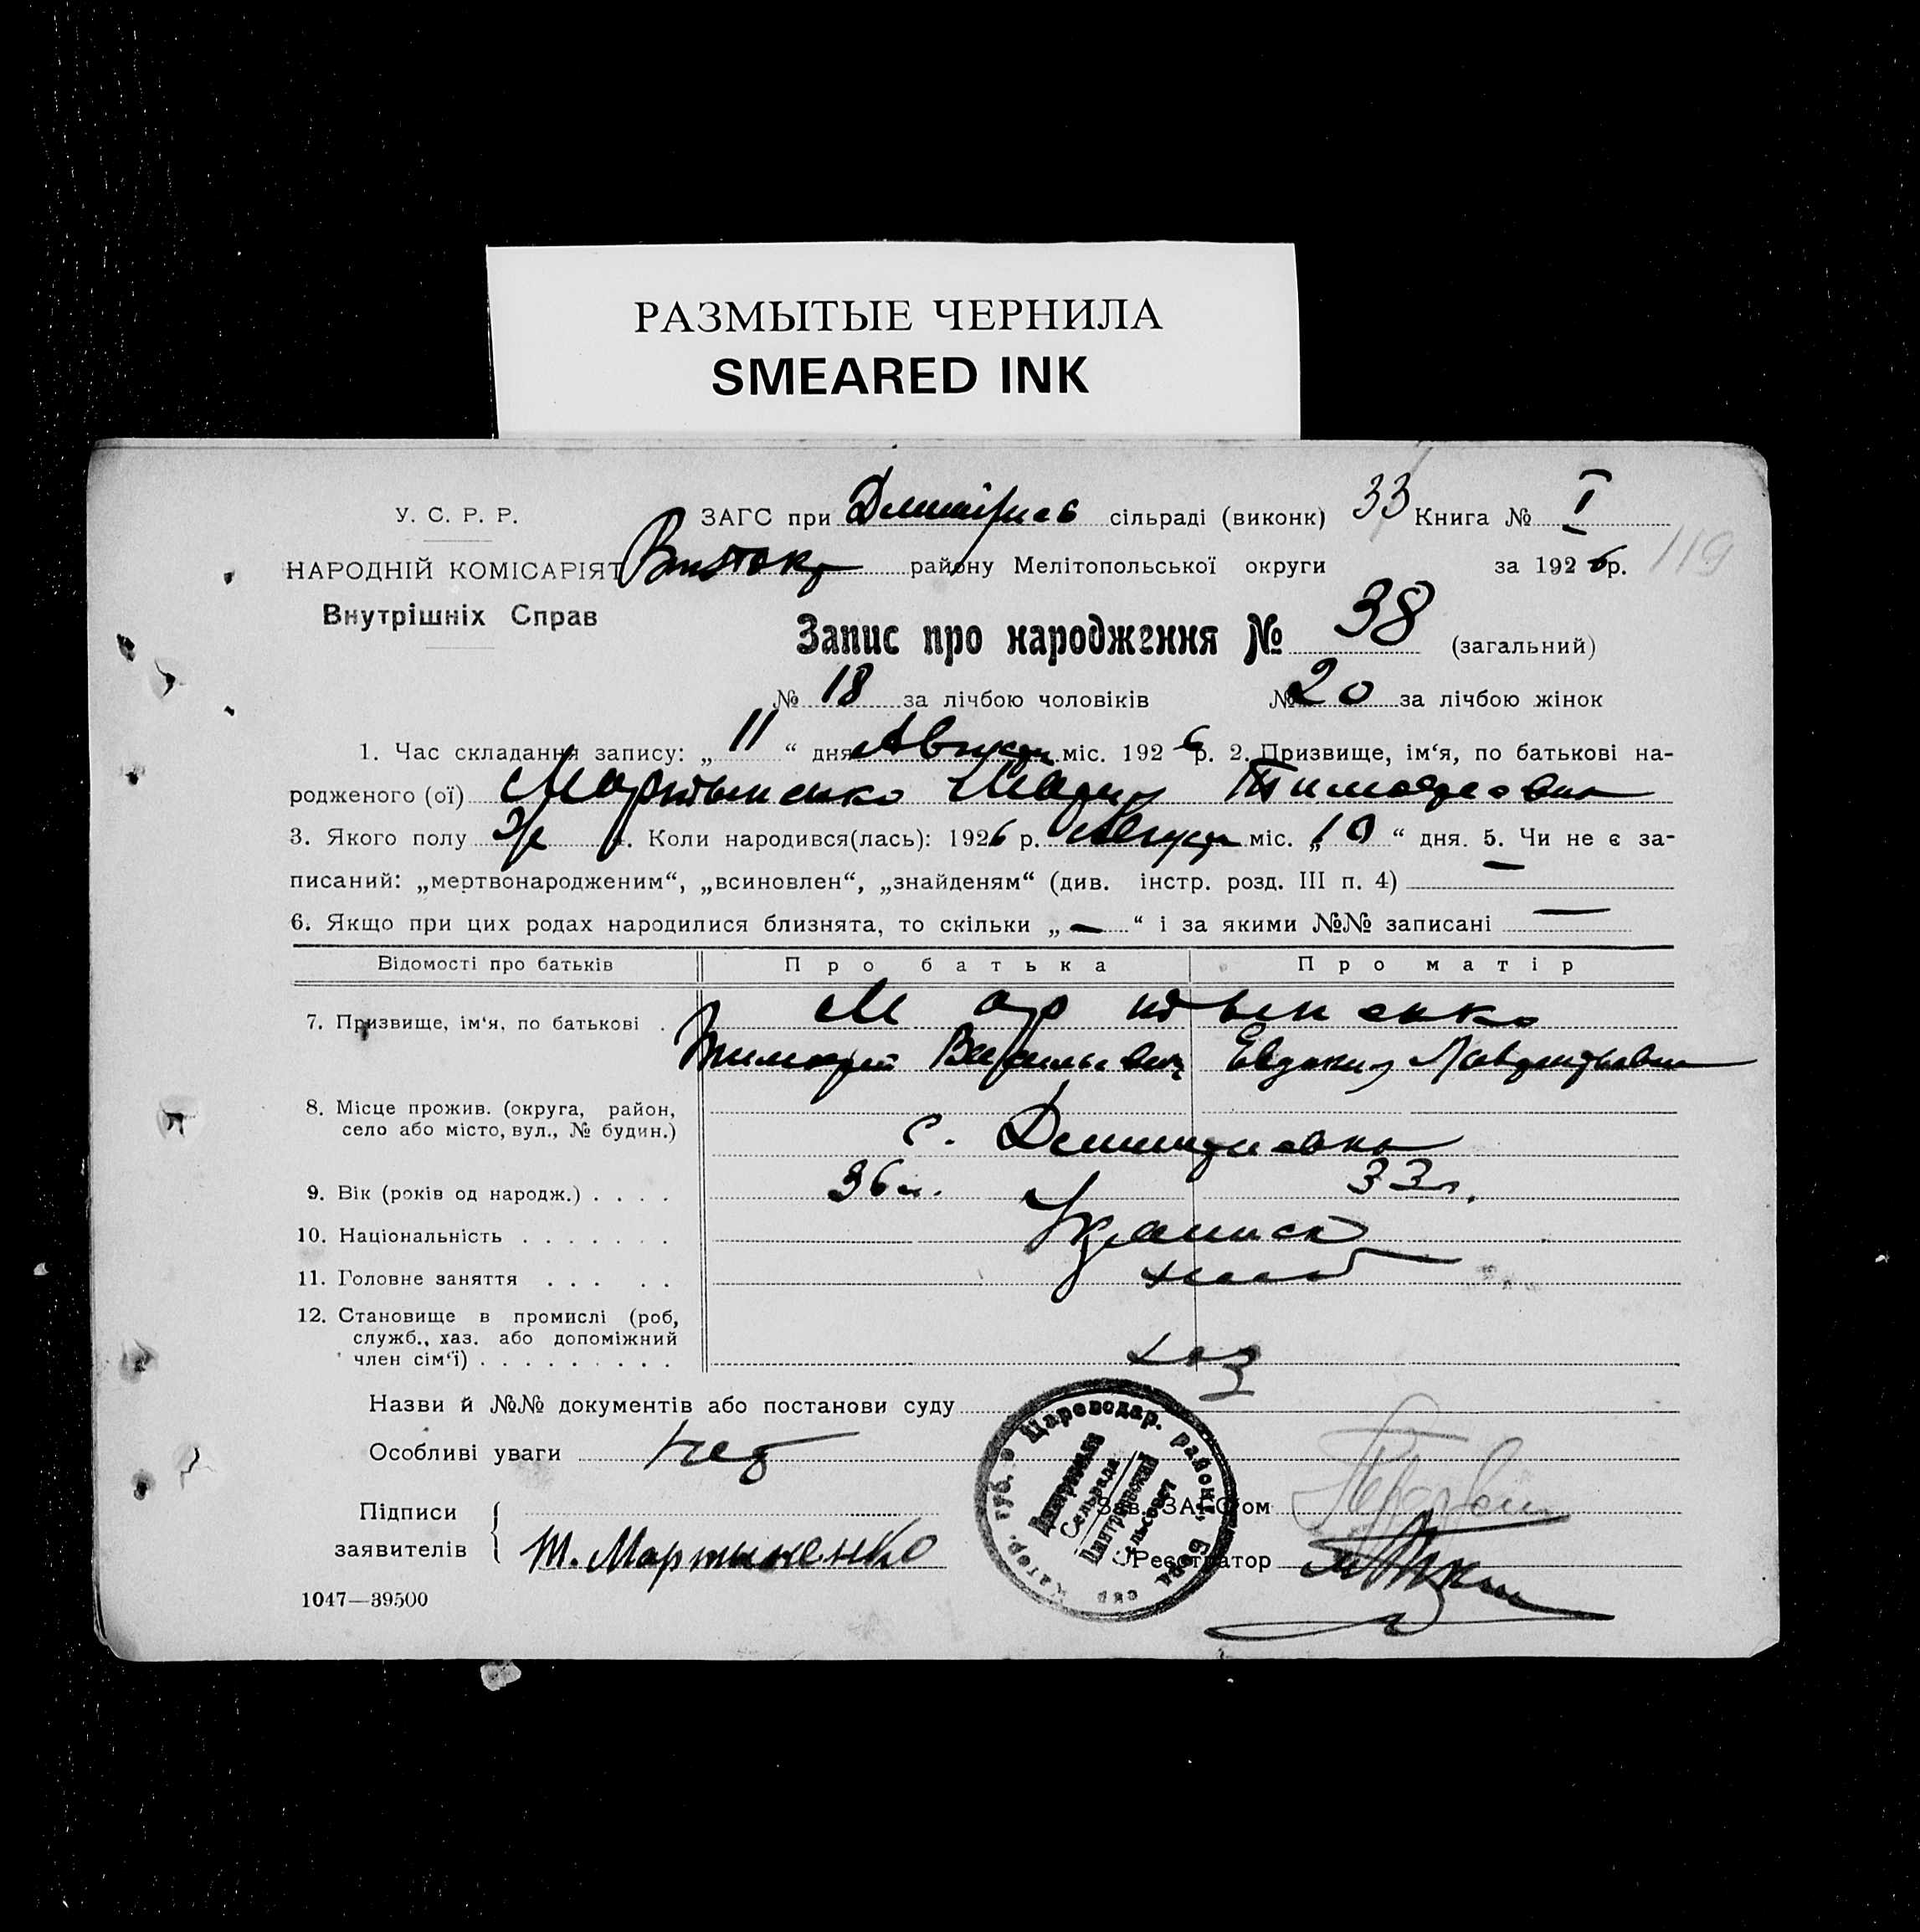 РАЗМЫТЫЕ ЧЕРНИЛА
SMEARED INK
У. С. Р. Р.
НАРОДНІЙ КОМІСАРІЯТ
Внутрішніх Справ
ЗАГС при Дмитріев сільраді (виконк) 33 Книга № I
району Мелітопольської округи за 1926 р. 119
Запис про народження № 38 (загальний)
№ 18 за лічбою чоловіків № 20 за лічбою жінок
1. Час складання запису: „ 11 “ дня Август міс. 1926 р. 2. Призвище, ім‘я, по батькові на-
родженого (ої) Мартыненко Мария Тимофеевна
3. Якого полу ж 4. Коли народився(лась): 1926 р. Август міс. „ 10 “ дня. 5. Чи не є за-
писаний: „мертвонародженим“, „всиновлен“, „знайденям“ (див. інстр. розд. III п. 4) —
6. Якщо при цих родах народилися близнята, то скільки „ — “ і за якими №№ записані —
Відомості про батьків Про батька Про матір
7. Призвище, ім‘я, по батькові . Мартыненко
Тимофей Васильевич Евдокия Лаврентьевна
8. Місце прожив. (округа, район,
село або місто, вул., № будин.) с. Димитриевка
9. Вік (років од народж.) . . . . 36 л. 33 л.
10. Національність . . . . . . . Украинск
11. Головне заняття . . . . . хлеб
12. Становище в промислі (роб,
служб., хаз. або допоміжний
член сім‘ї) . . . . . . . . . хоз
Назви й №№ документів або постанови суду
Особливі уваги нет
Підписи
заявителів Т. Мартыненко
Зав. ЗАГС‘ом
Реєстратор
Цареводар. район.
1047—39500